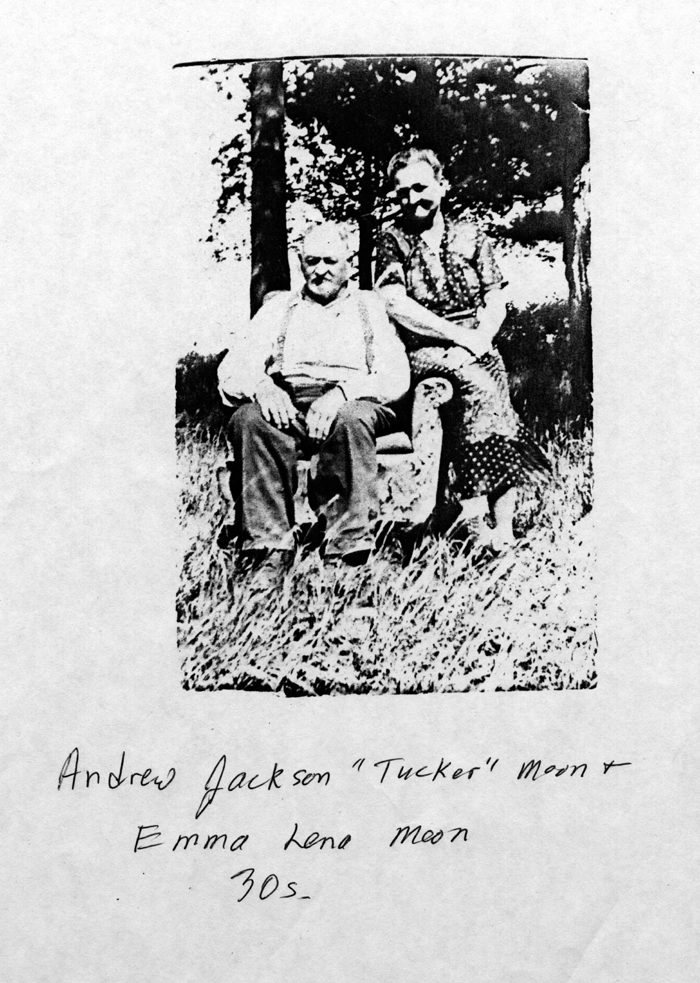 Andrew Jackson "Tucker" Moon +
Emma Lena Moon
30s.